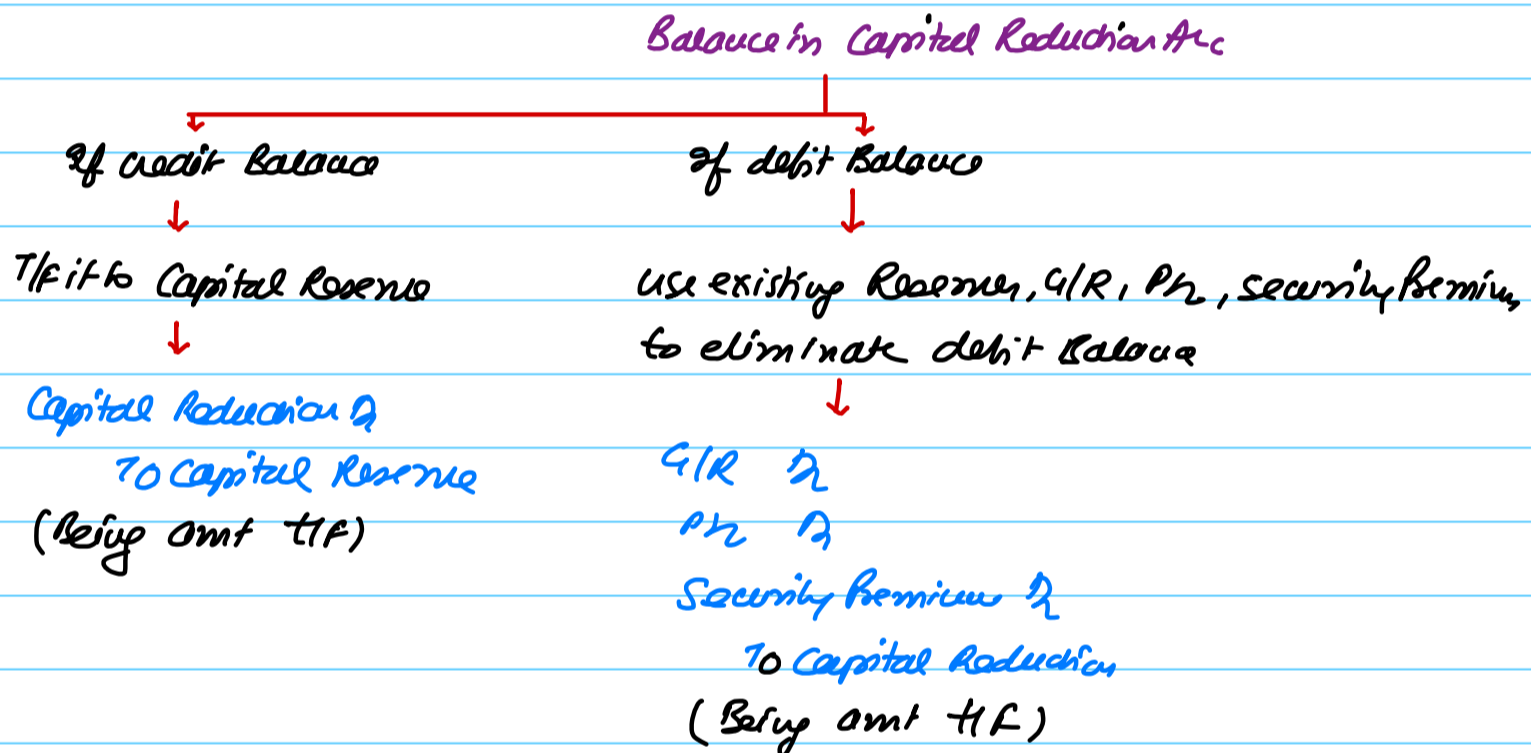 Balance in Capital Reduction A/c
If credit Balance
T/f it to Capital Reserve
Capital Reduction Dr
To Capital Reserve
(Being amt t/f)
If debit Balance
use existing Reserves, G/R, P/L, security Premium
to eliminate debit Balance
G/R Dr
P/L Dr
Security Premium Dr
To Capital Reduction
(Being amt t/f)